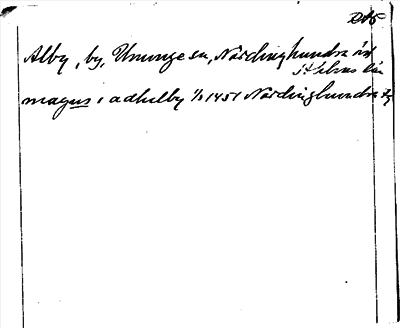 DAS
Alby, by, Ununge sn, Närdinghundra hd
St-holms län
magnus i adhelby 1/2 1451 Närdinghundra